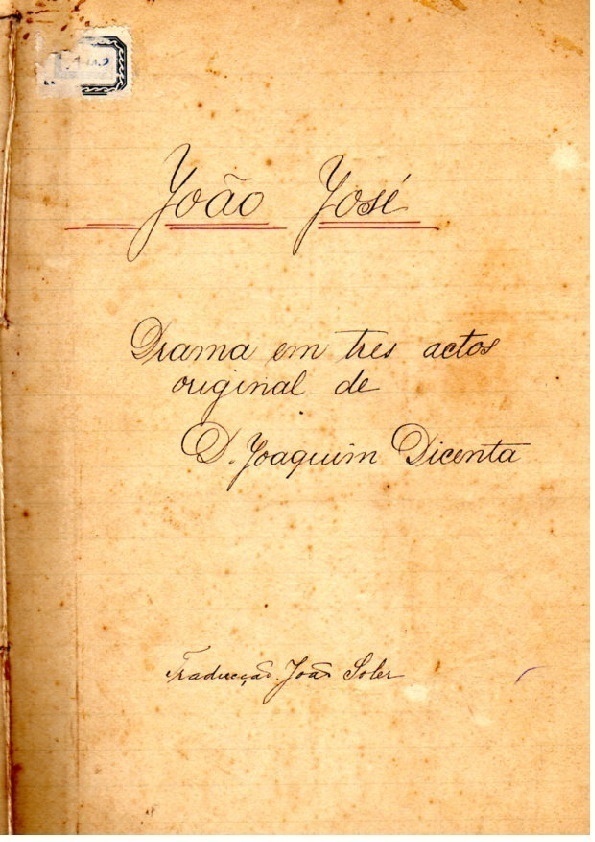 João José
Drama em tres actos
original de
D. Joaquim Dicenta
Traducção João Soler